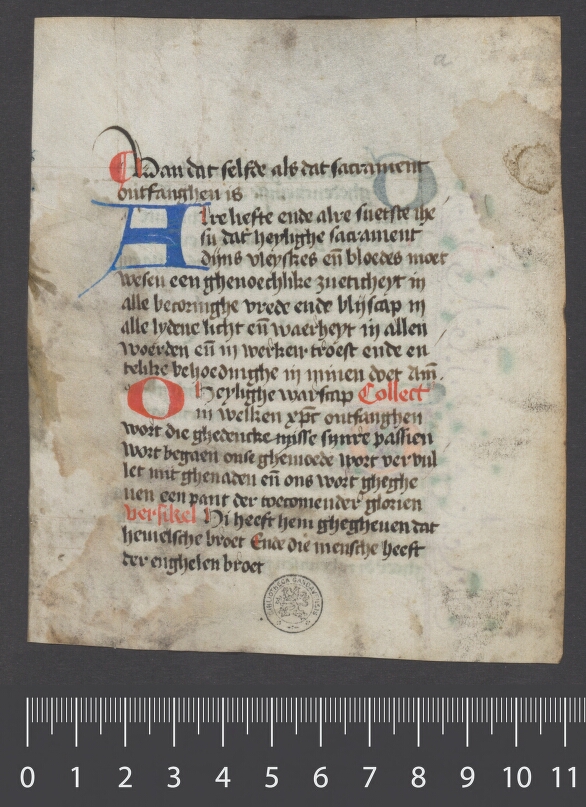 a
Wandat selfde als dat sacrament
ontfanghen is
Alre liefste ende alre suetste ihe
su dat heylighe sacrament
dijns vleyskes eñ bloedes moet
wesen een ghenoechlike zueticheyt in
alle becoringhe vrede ende blijscap in
alle lydene licht eñ waerheyt in allen
woerden eñ in werken troest ende en
telike behoedinghe in minen doet Am̄.
O heylighe warscap Collect
in welken xp̄c ontfanghen
wort die ghedencke nisse sijnre passien
wort begaen onse ghemoede wort vervul
let mit ghenaden eñ ons wort gheghe
uen een pant der toecomender glorien
versikel Hi heeft hem ghegheuen dat
hemelsche broet Ende die mensche heeft
der enghelen broet
0 1 2 3 4 5 6 7 8 9 10 11